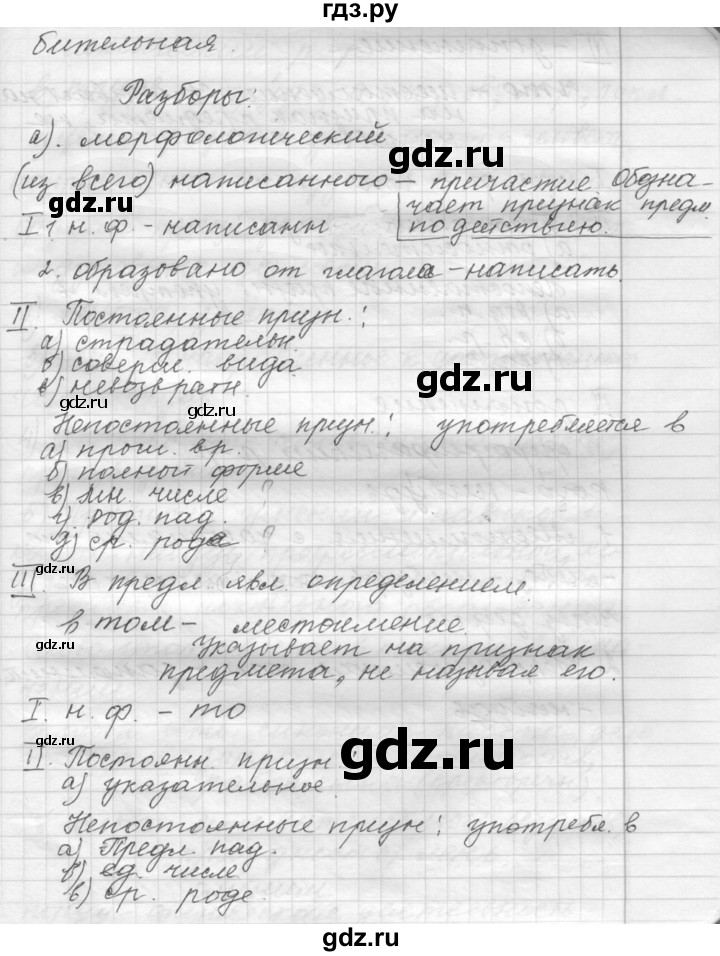 гдз.ру
бительная.
Разборы:
а). морфологический
(из всего) написанного – причастие. Обозна-
чает признак предм.
по действию.
I 1. н. ф. - написанн
2. образовано от глагола - написать.
II. Постоянные призн.:
а) страдательн.
б) соверш. вида.
в) невозвратн.
Непостоянные призн.: употребляется в
а) прош. вр.
б) полной форме
в) мн. числе ?
г) род. пад.
д) ср. рода ?
III. В предл. явл. определением.
в том – местоимение.
Указывает на признак
предмета, не называя его.
I. н. ф. - то
II. Постоянн. призн.:
а) указательное.
Непостоянные призн.: употребл. в
а) Предл. пад.
б) ед. числе
в) ср. роде.
gdz.ru
gdz.ru
gdz.ru
gdz.ru
gdz.ru
gdz.ru
gdz.ru
gdz.ru
gdz.ru
gdz.ru
gdz.ru
gdz.ru
gdz.ru